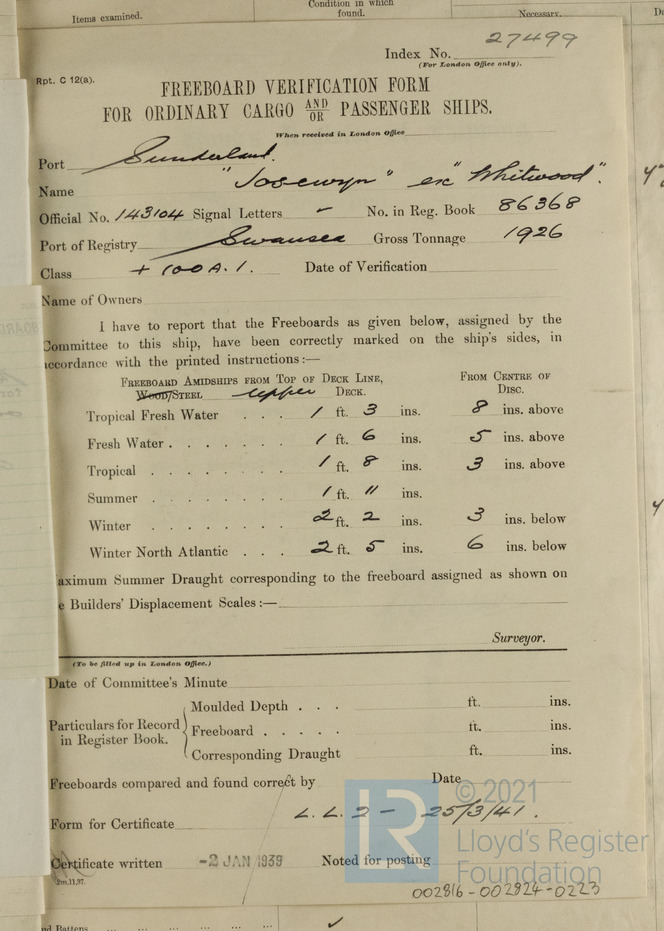 Items examined.
Condition in which
found.
Necessary.
27499
Index No.
(For London Office only).
Rpt. C 12(a).
FREEBOARD VERIFICATION FORM
FOR ORDINARY CARGO AND/OR PASSENGER SHIPS.
When received in London Office
Port Sunderland.
Name "Joscwyn" ex "Whitwood".
Official No. 143104 Signal Letters - No. in Reg. Book 86368
Port of Registry Swansea Gross Tonnage 1926
Class + 100 A.1. Date of Verification
Name of Owners
I have to report that the Freeboards as given below, assigned by the
Committee to this ship, have been correctly marked on the ship's sides, in
accordance with the printed instructions:—
FREEBOARD AMIDSHIPS FROM TOP OF DECK LINE, FROM CENTRE OF
WOOD/STEEL upper DECK. DISC.
Tropical Fresh Water . . . 1 ft. 3 ins. 8 ins. above
Fresh Water . . . . . . 1 ft. 6 ins. 5 ins. above
Tropical . . . . . . . 1 ft. 8 ins. 3 ins. above
Summer . . . . . . . 1 ft. 11 ins.
Winter . . . . . . . 2 ft. 2 ins. 3 ins. below
Winter North Atlantic . . . 2 ft. 5 ins. 6 ins. below
aximum Summer Draught corresponding to the freeboard assigned as shown on
e Builders' Displacement Scales:—
Surveyor.
(To be filled up in London Office.)
Date of Committee's Minute
Particulars for Record
in Register Book.
Moulded Depth . . . ft. ins.
Freeboard . . . . . ft. ins.
Corresponding Draught ft. ins.
Freeboards compared and found correct by Date
L.L.2 - 25/3/41.
Form for Certificate
Certificate written -2 JAN 1939 Noted for posting
2m,11,37.
LR
© 2021
Lloyd's Register
Foundation
002816-002824-0223
nd Battens